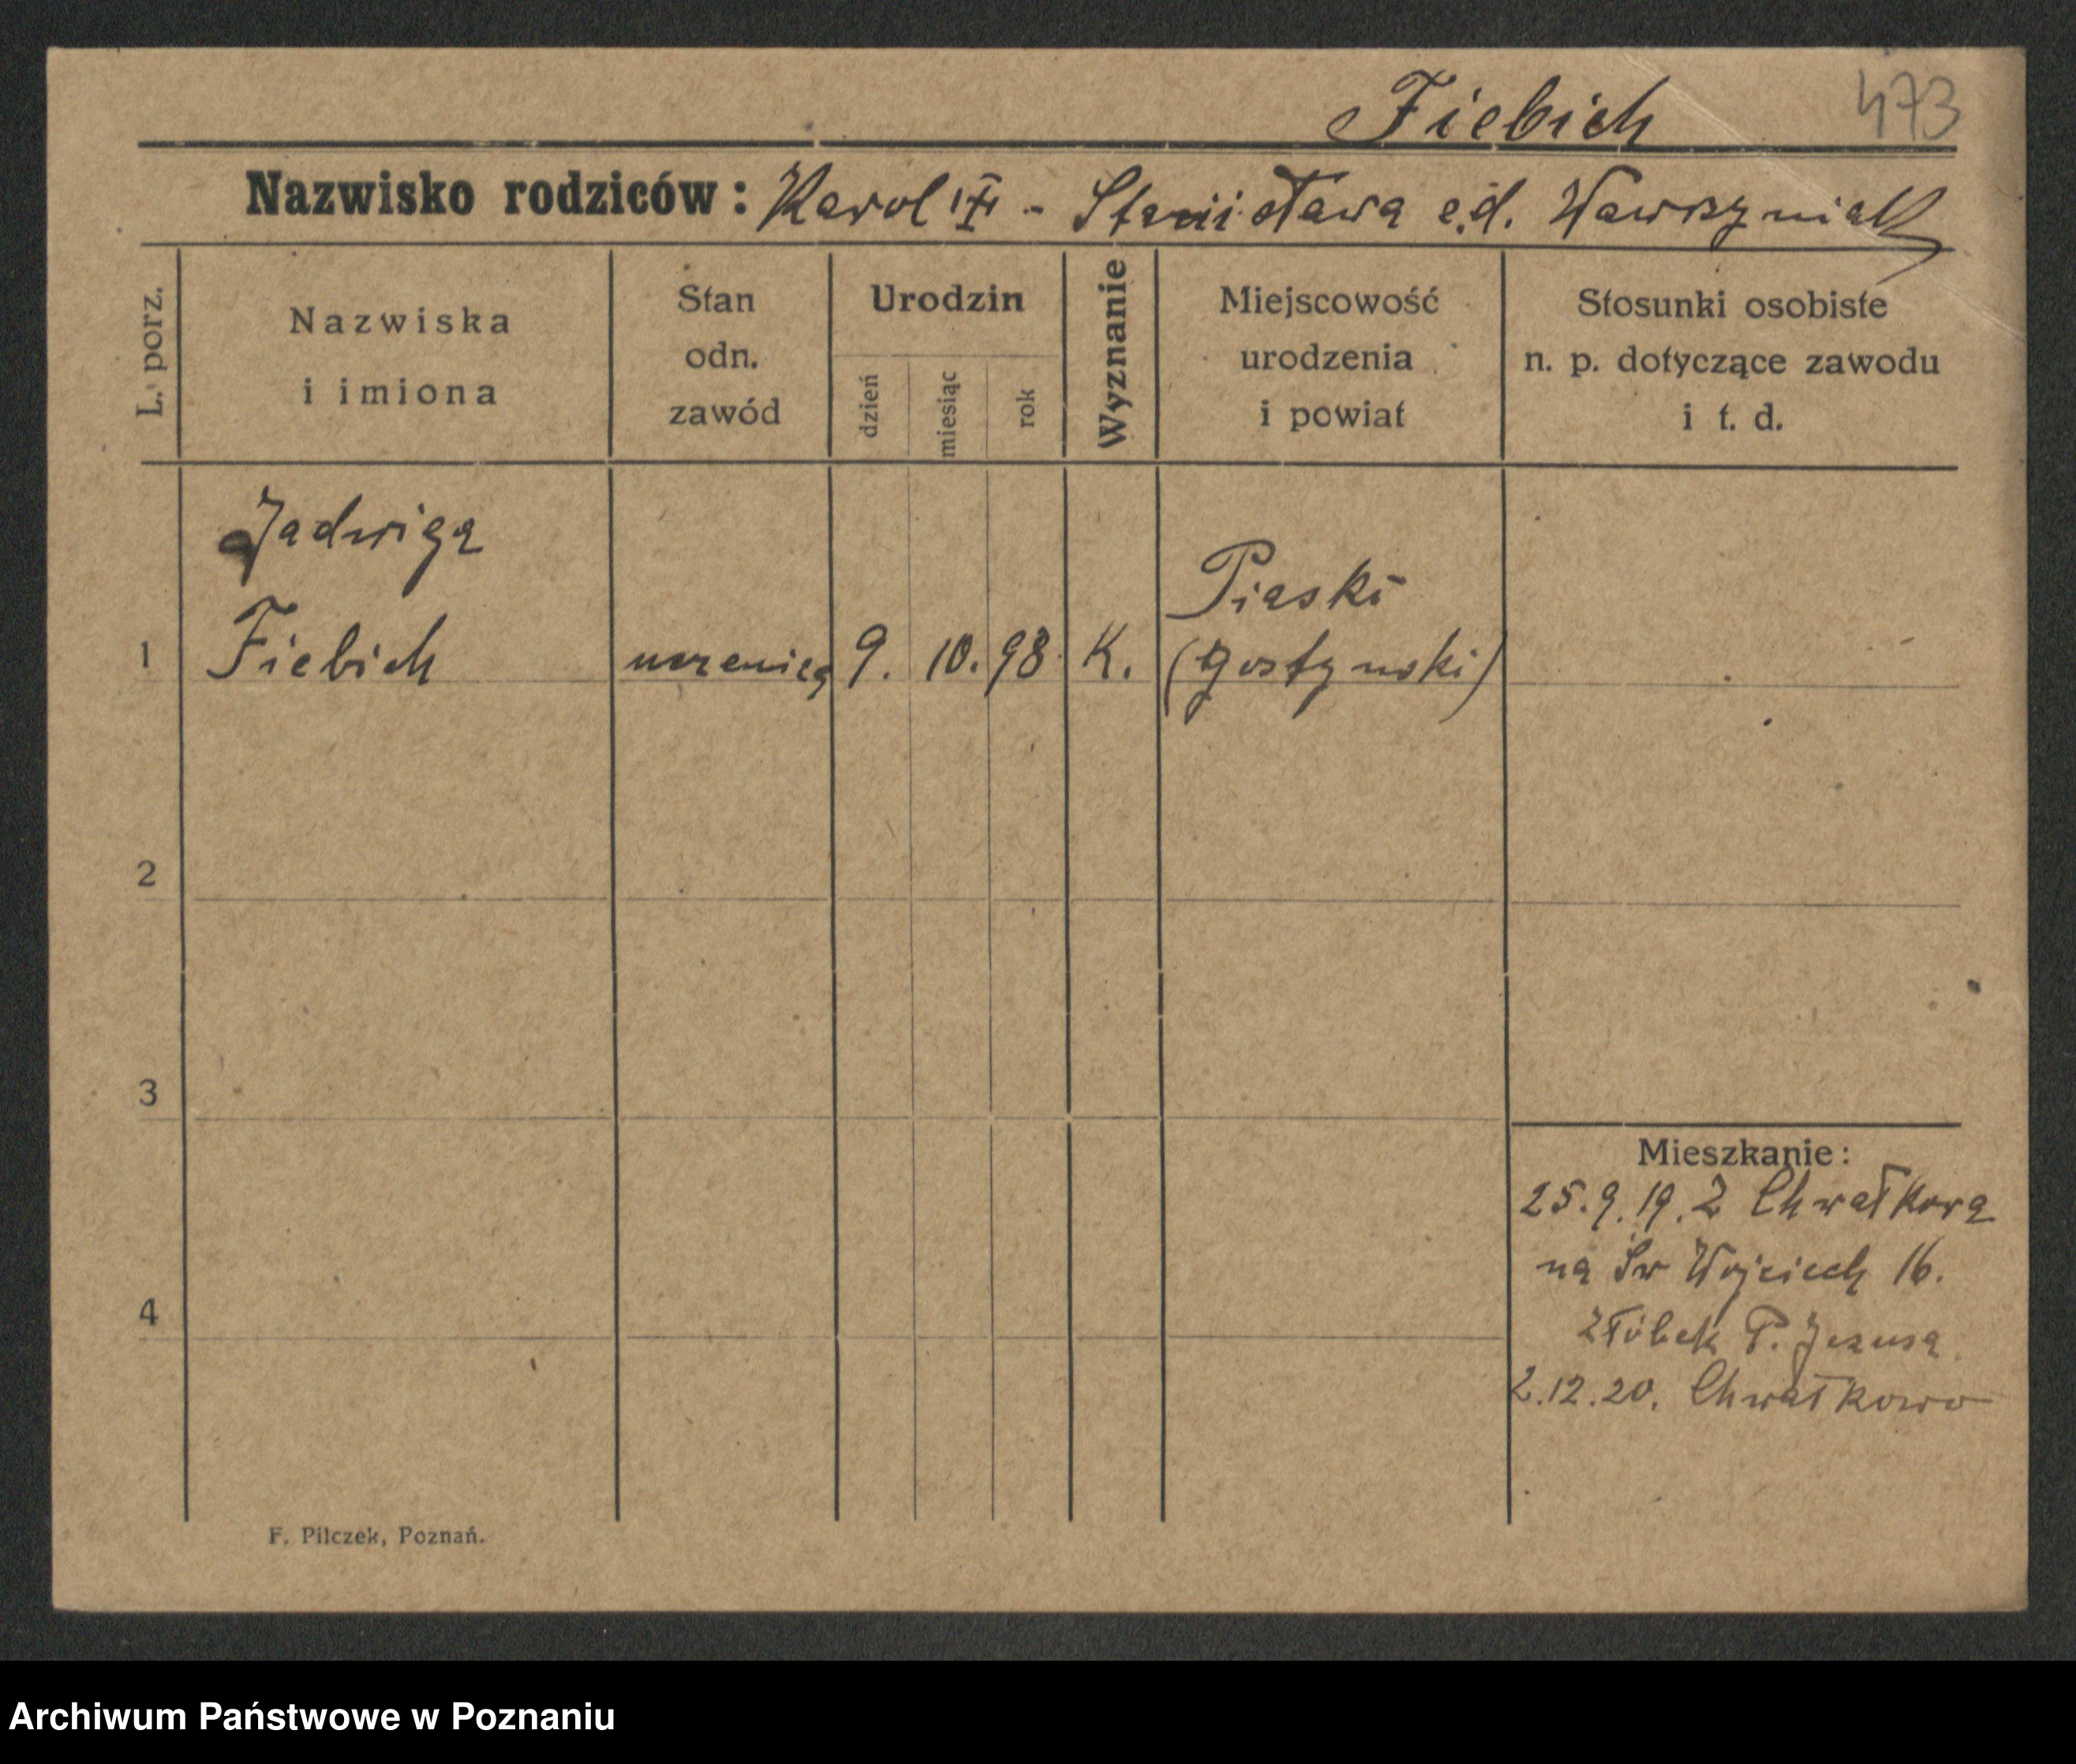 Fiebich 473
Nazwisko rodziców: Karol - Stanisława Wawrzyniak
L. porz.
Nazwiska
i imiona
Stan
odn.
zawód
Urodzin
dzień
miesiąc
rok
Wyznanie
Miejscowość
urodzenia
i powiat
Stosunki osobiste
n. p. dotyczące zawodu
i t. d.
Jadwiga
1 Fiebich
uczenica
9. 10. 98
K.
Piaski
(gostynski)
2
3
4
Mieszkanie:
25.9.19. Z Chwałkowa
na Św Wojciech 16.
Żłóbek P. Jezusa
2.12.20. Chwałkowo
F. Pilczek, Poznań.
Archiwum Państwowe w Poznaniu